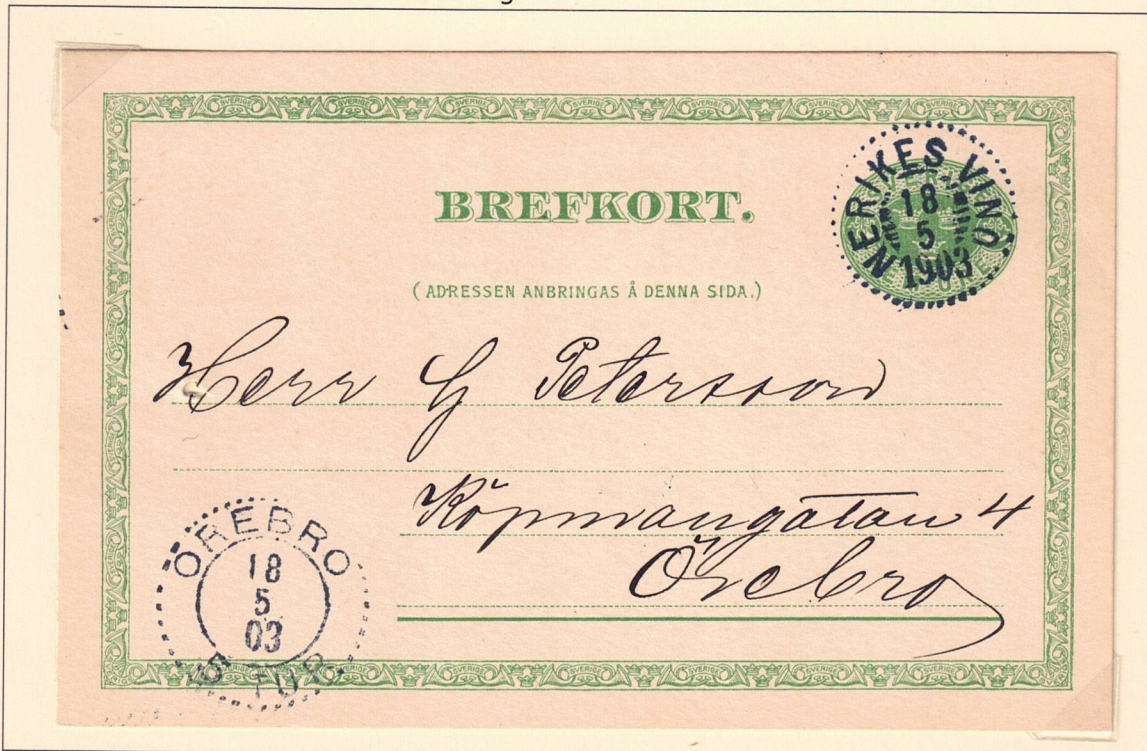 BREFKORT.
NERIKES VINÖ.
18
5
1903
(ADRESSEN ANBRINGAS Å DENNA SIDA.)
Herr G Petersson
Köpmangatan 4
Örebro
ÖREBRO
18
5
03
5 TUR